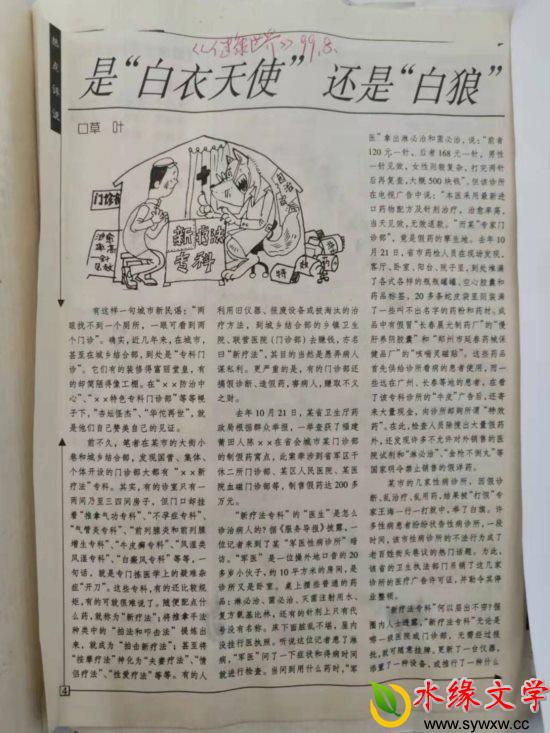 《健康世界》99.8.
热点评说
是“白衣天使” 还是“白狼”
口草 叶
门诊部
新疗法
专科
特
有这样一句城市新民谣：“两
眼找不到一个厕所，一眼可看到两
个门诊”。确实，近几年来，在城市，
甚至在城乡结合部，到处是“专科门
诊”。它们有的装修得富丽堂皇，有
的却简陋得像工棚。在“××防治中
心”、“××特色专科门诊部”等等幌子
下，“杏坛怪杰”、“华佗再世”，就
是他们自己赞美自己的见证。
前不久，笔者在某市的大街小
巷和城乡结合部，发现国营、集体、
个体开设的门诊部大都有“××新
疗法”专科。其实，有的诊室只有一
两间乃至三四间房子，但门口却挂
着“推拿气功专科”、“不孕症专科”、
“气管炎专科”、“前列腺炎和前列腺
增生专科”、“牛皮癣专科”、“风湿类
风湿专科”、“白癜风专科”等等，一
句话，就是专门拣医学上的疑难杂
症“开刀”。这些专科，有的还比较规
矩，有的可就很难说了。随便配点什
么药，就称为“新疗法”；将推拿手法
种类中的“拍法和叩击法”提炼出
来，就成为“拍击新疗法”；甚至将
“按摩疗法”神化为“夫妻疗法”、“情
侣疗法”、“性爱疗法”等等。有的人
利用旧仪器、报废设备或被淘汰的治
疗方法，到城乡结合部的乡镇卫生
院、联营医院(门诊部)去赚钱，亦名
曰“新疗法”，其目的当然是愚弄病人
谋私利。更严重的是，有的门诊部还
搞假诊断、造假药，害病人，赚取不义
之财。
去年10月21日，某省卫生厅药
政局根据群众举报，一举查获了福建
莆田人陈××在省会城市某门诊部
的制假药窝点，此案牵涉到省军区干
休二所门诊部、某区人民医院、某医
院血端门诊部等，制售假药达200多
万元。
“新疗法专科”的“医生”是怎么
诊治病人的？据《服务导报》披露，一
位记者来到了某“军医性病诊所”暗
访。“军医”是一位操外地口音的20
多岁小伙子，约10平方米的房间，是
诊所又是卧室。桌上摆些普通的药
品：淋必治、菌必治、灭菌注射用水、
复方氨基比林，还有的针剂上只有代
号没有名称。床下面脏乱不堪，屋内
没挂行医执照。听说这位记者患了淋
病，“军医”问了一下症状和得病时间
就进行检查。当问到用什么药时，“军
医”拿出淋必治和菌必治，说：“前者
120元一针，后者168元一针，男性
一针见效，女性则较复杂，打完两针
后再复查，大概500块钱”。但该诊所
在电视广告中说：“本医采用最新进
口药物配方及针剂治疗，治愈率高，
当天见效，无效退款。”而某“专家门
诊部”，竟是假药的孳生地。去年10
月21日，省市药检人员在现场发现，
客厅、卧室、阳台、院子里，到处堆满
了各式各样的瓶瓶罐罐，空心胶囊和
药品标签，20多条蛇皮袋里则装满
了一些叫不出名字的药粉和药材，成
品中有假冒“长春晨光制药厂”的“慢
肝养阴胶囊”和“郑州市延春药械保
健品厂”的“咳喘灵磁贴”。这些药品
首先供给诊所看病的患者使用，而一
些远在广州、长春等地的患者，在看
了该专科诊所的“牛皮”广告后，还寄
来大量现金，向诊所邮购所谓“特效
药”。在此，检查人员除搜出大量假药
外，还发现许多不允许对外销售的医
院试剂和“淋必治”、“金枪不倒丸”等
国家明令禁止销售的假洋药。
某市的几家性病诊所，因假诊
断、乱治疗、乱用药，结果被“打假”专
家王海一行一打就中，举了白旗。许
多性病患者纷纷状告性病诊所，一段
时间，该市性病诊所的不法行为成了
老百姓街头巷议的热门话题。为此，
该省的卫生执法部门吊销了这几家
诊所的医疗广告许可证，并勒令其停
业整顿。
“新疗法专科”何以层出不穷？据
圈内人士透露，“新疗法专科”无论是
哪一级医院或门诊部，无需经过报
批，就可随意挂牌。更新了一台仪器，
添置了一种设备，或推行了一种什么
4
水缘文学
www.sywxw.com